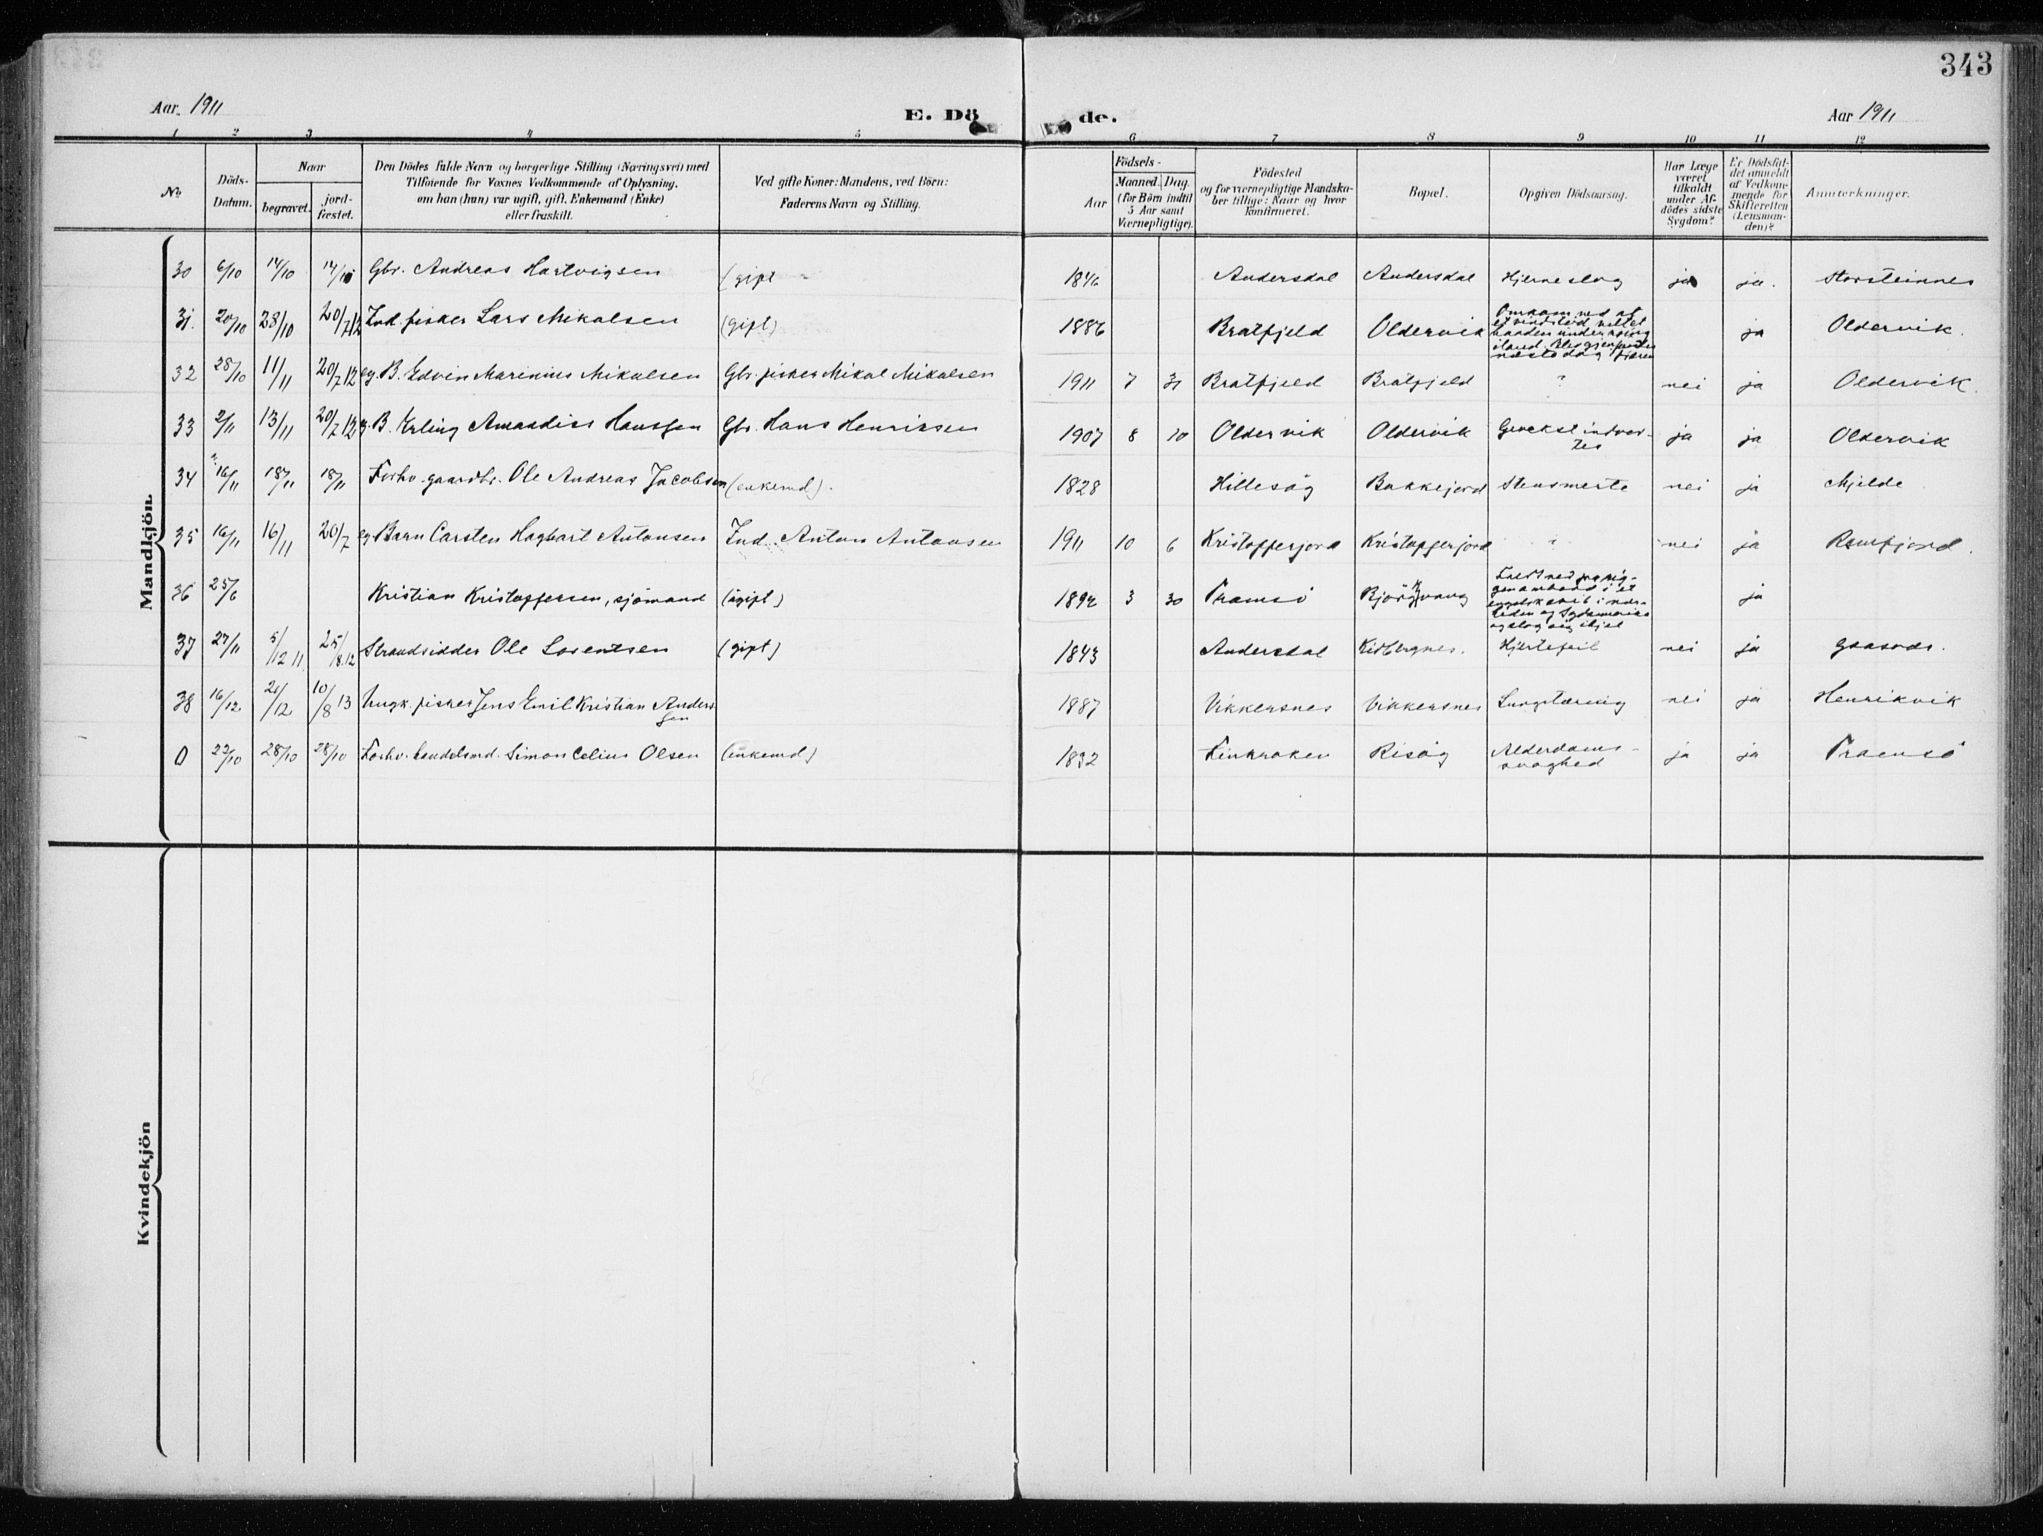 343
Aar 1911 E. Dö de. Aar 1911
1 2 3 4 5 6 7 8 9 10 11 12
No.
Döds-
Datum.
Naar
begravet.
jord-
fæstet.
Den Dödes fulde Navn og borgerlige Stilling (Næringsvei) med
Tilföiende for Voxnes Vedkommende af Oplysning,
om han (hun) var ugift, gift, Enkemand (Enke)
eller fraskilt.
Ved gifte Koner: Mandens, ved Börn:
Faderens Navn og Stilling.
Födsels-
Aar
Maaned. Dag.
(for Börn indtil
5 Aar samt
Værnepligtige).
Födested
og for værnepligtige Mandska-
ber tillige: Naar og hvor
konfirmeret.
Bopæl.
Opgiven Dödsaarsag.
Har Læge
været
tilkaldt
under Af-
dödes sidste
Sygdom?
Er Dödsfal-
det anmeldt
af Vedkom-
mende for
Skifteretten
(Lensman-
den)?
Anmærkninger.
Mandkjön.
30 6/10 14/10 14/10 Gbr. Andreas Hartvigsen (gift 1846 Andersdal Andersdal Hjerneslag ja ja. Storsteinnes
31. 20/10 28/10 20/7 12 Ind. fisker Lars Mikalsen (gift) 1886 Bratfjeld Oldervik Omkom ved at
et vindstød
baaden under
iland.
næste dag ja Oldervik.
32 28/10 11/11 20/7 12 eg. B. Edvin Marinius Mikalsen Gbr. fisker Mikal Mikalsen 1911 7 31 Bratfjeld Bratfjeld ? nei ja Oldervik.
33 2/11 13/11 20/7 12 eg. B. Erling Amandus Hanssen Gbr. Hans Henriksen 1907 8 10 Oldervik Oldervik Gevekst indvor-
tes ja ja Oldervik
34 16/11 18/11 18/11 Forhv. gaardbr. Ole Andreas Jacobsen (enkemd). 1828 Hillesøy Bakkejord Stensmerte nei ja Mjelde
35 16/11 16/11 20/7 eg. Barn Carsten Hagbart Antonsen Ind. Anton Antonsen 1911 10 6 Kristofferjord Kristofferjord ? nei ja
36 25/6 Kristian Kristoffersen, sjömand (ugift) 1892 3 30 Tromsö ja
37 27/11 5/12 11 25/8 12 Strandsidder Ole Lorentsen (gift) 1843 Andersdal Hjertefeil nei ja
38 16/12 21/12 10/8 13 Ungk. fisker Jens Emil Kristian Anders
sen 1887 Vikkersnes Vikkersnes Lungetæring nei ja Henrikvik
0 22/10 28/10 28/10 Forhv. handelsmd. Simon Celius Olsen (enkemd) 1832 Finkroken Risöy Alderdoms-
svaghed ja ja Tromsö
Kvindekjön